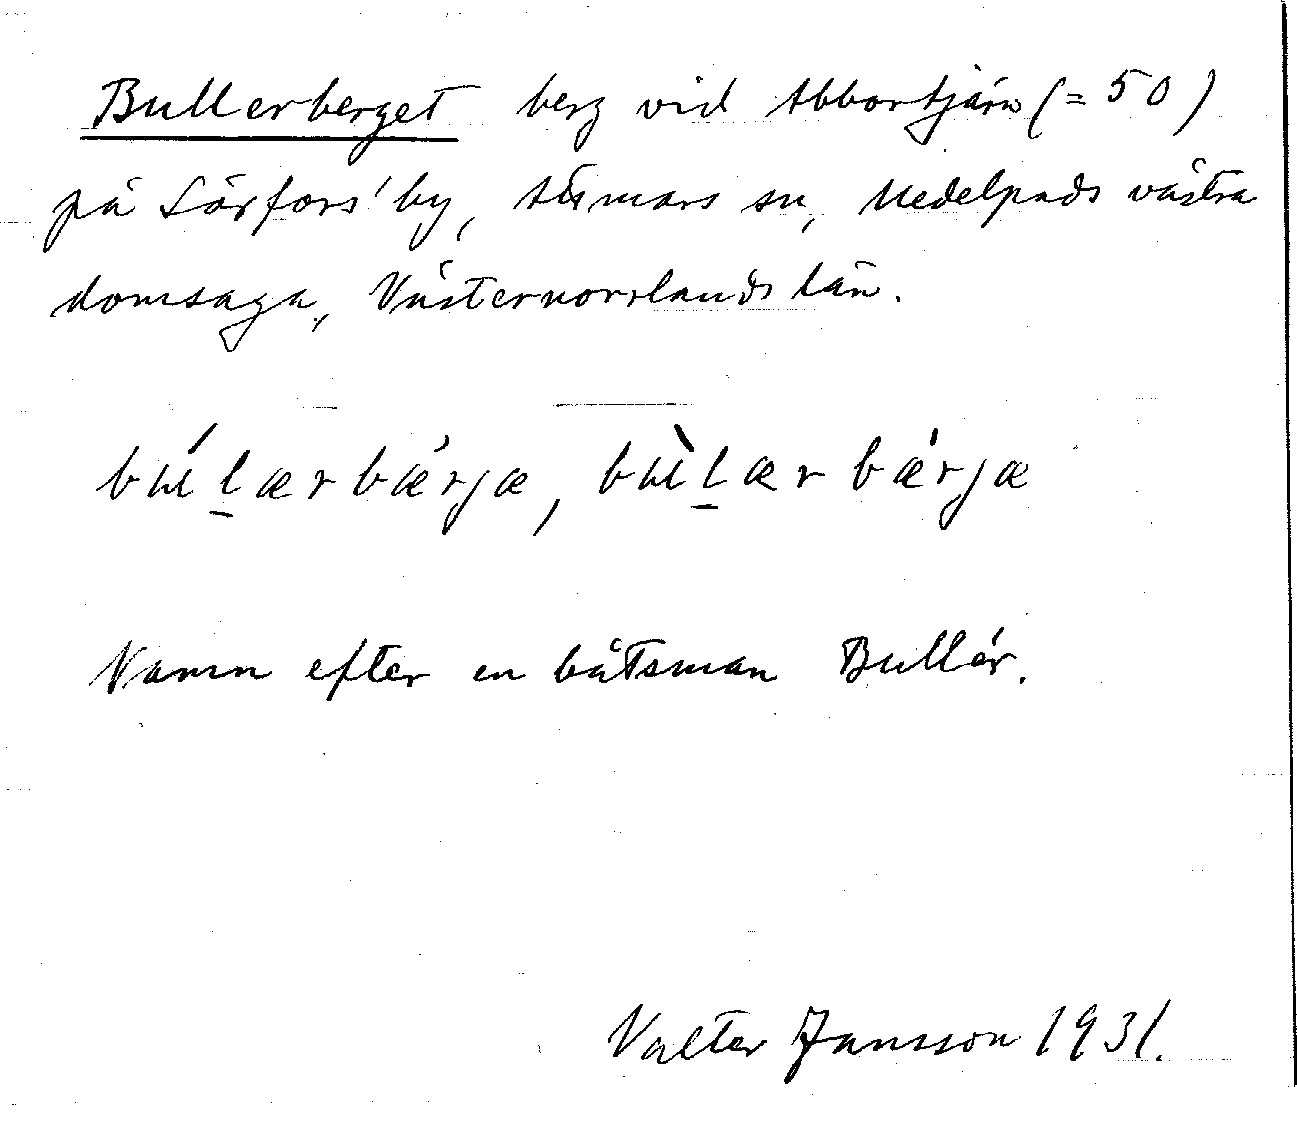 Bullerberget berg vid Abbortjärn (= 50)
på Sörfors' by, Attmars sn, Medelpads västra
domsaga, Västernorrlands län.
búlærbǽrjæ, bùlærbǽrjæ
Namn efter en båtsman Bullér.
Valter Jansson 1931.